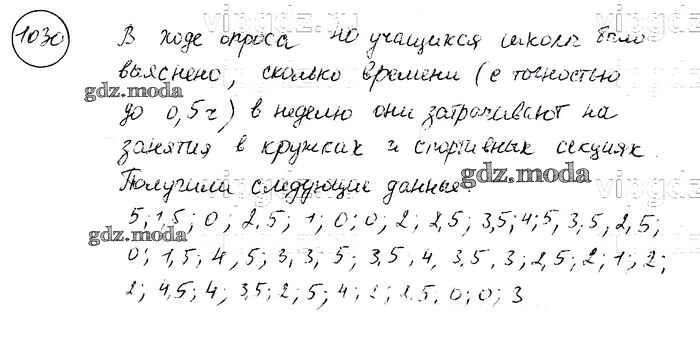 1030
В ходе опроса 40 учащихся школы было
выяснено, сколько времени (с точностью
до 0,5 ч) в неделю они затрачивают на
занятия в кружках и спортивных секциях.
Получили следующие данные:
5; 1,5; 0; 2,5; 1; 0; 0; 2; 2,5; 3,5; 4; 5, 3,5, 2,5;
0; 1,5; 4, 5; 3, 3; 5; 3,5, 4, 3,5, 3; 2,5; 2; 1; 2;
2; 4,5; 4; 3,5; 2; 5; 4; 2; 2,5, 0; 0; 3
gdz.moda
gdz.moda
gdz.moda
gdz.moda